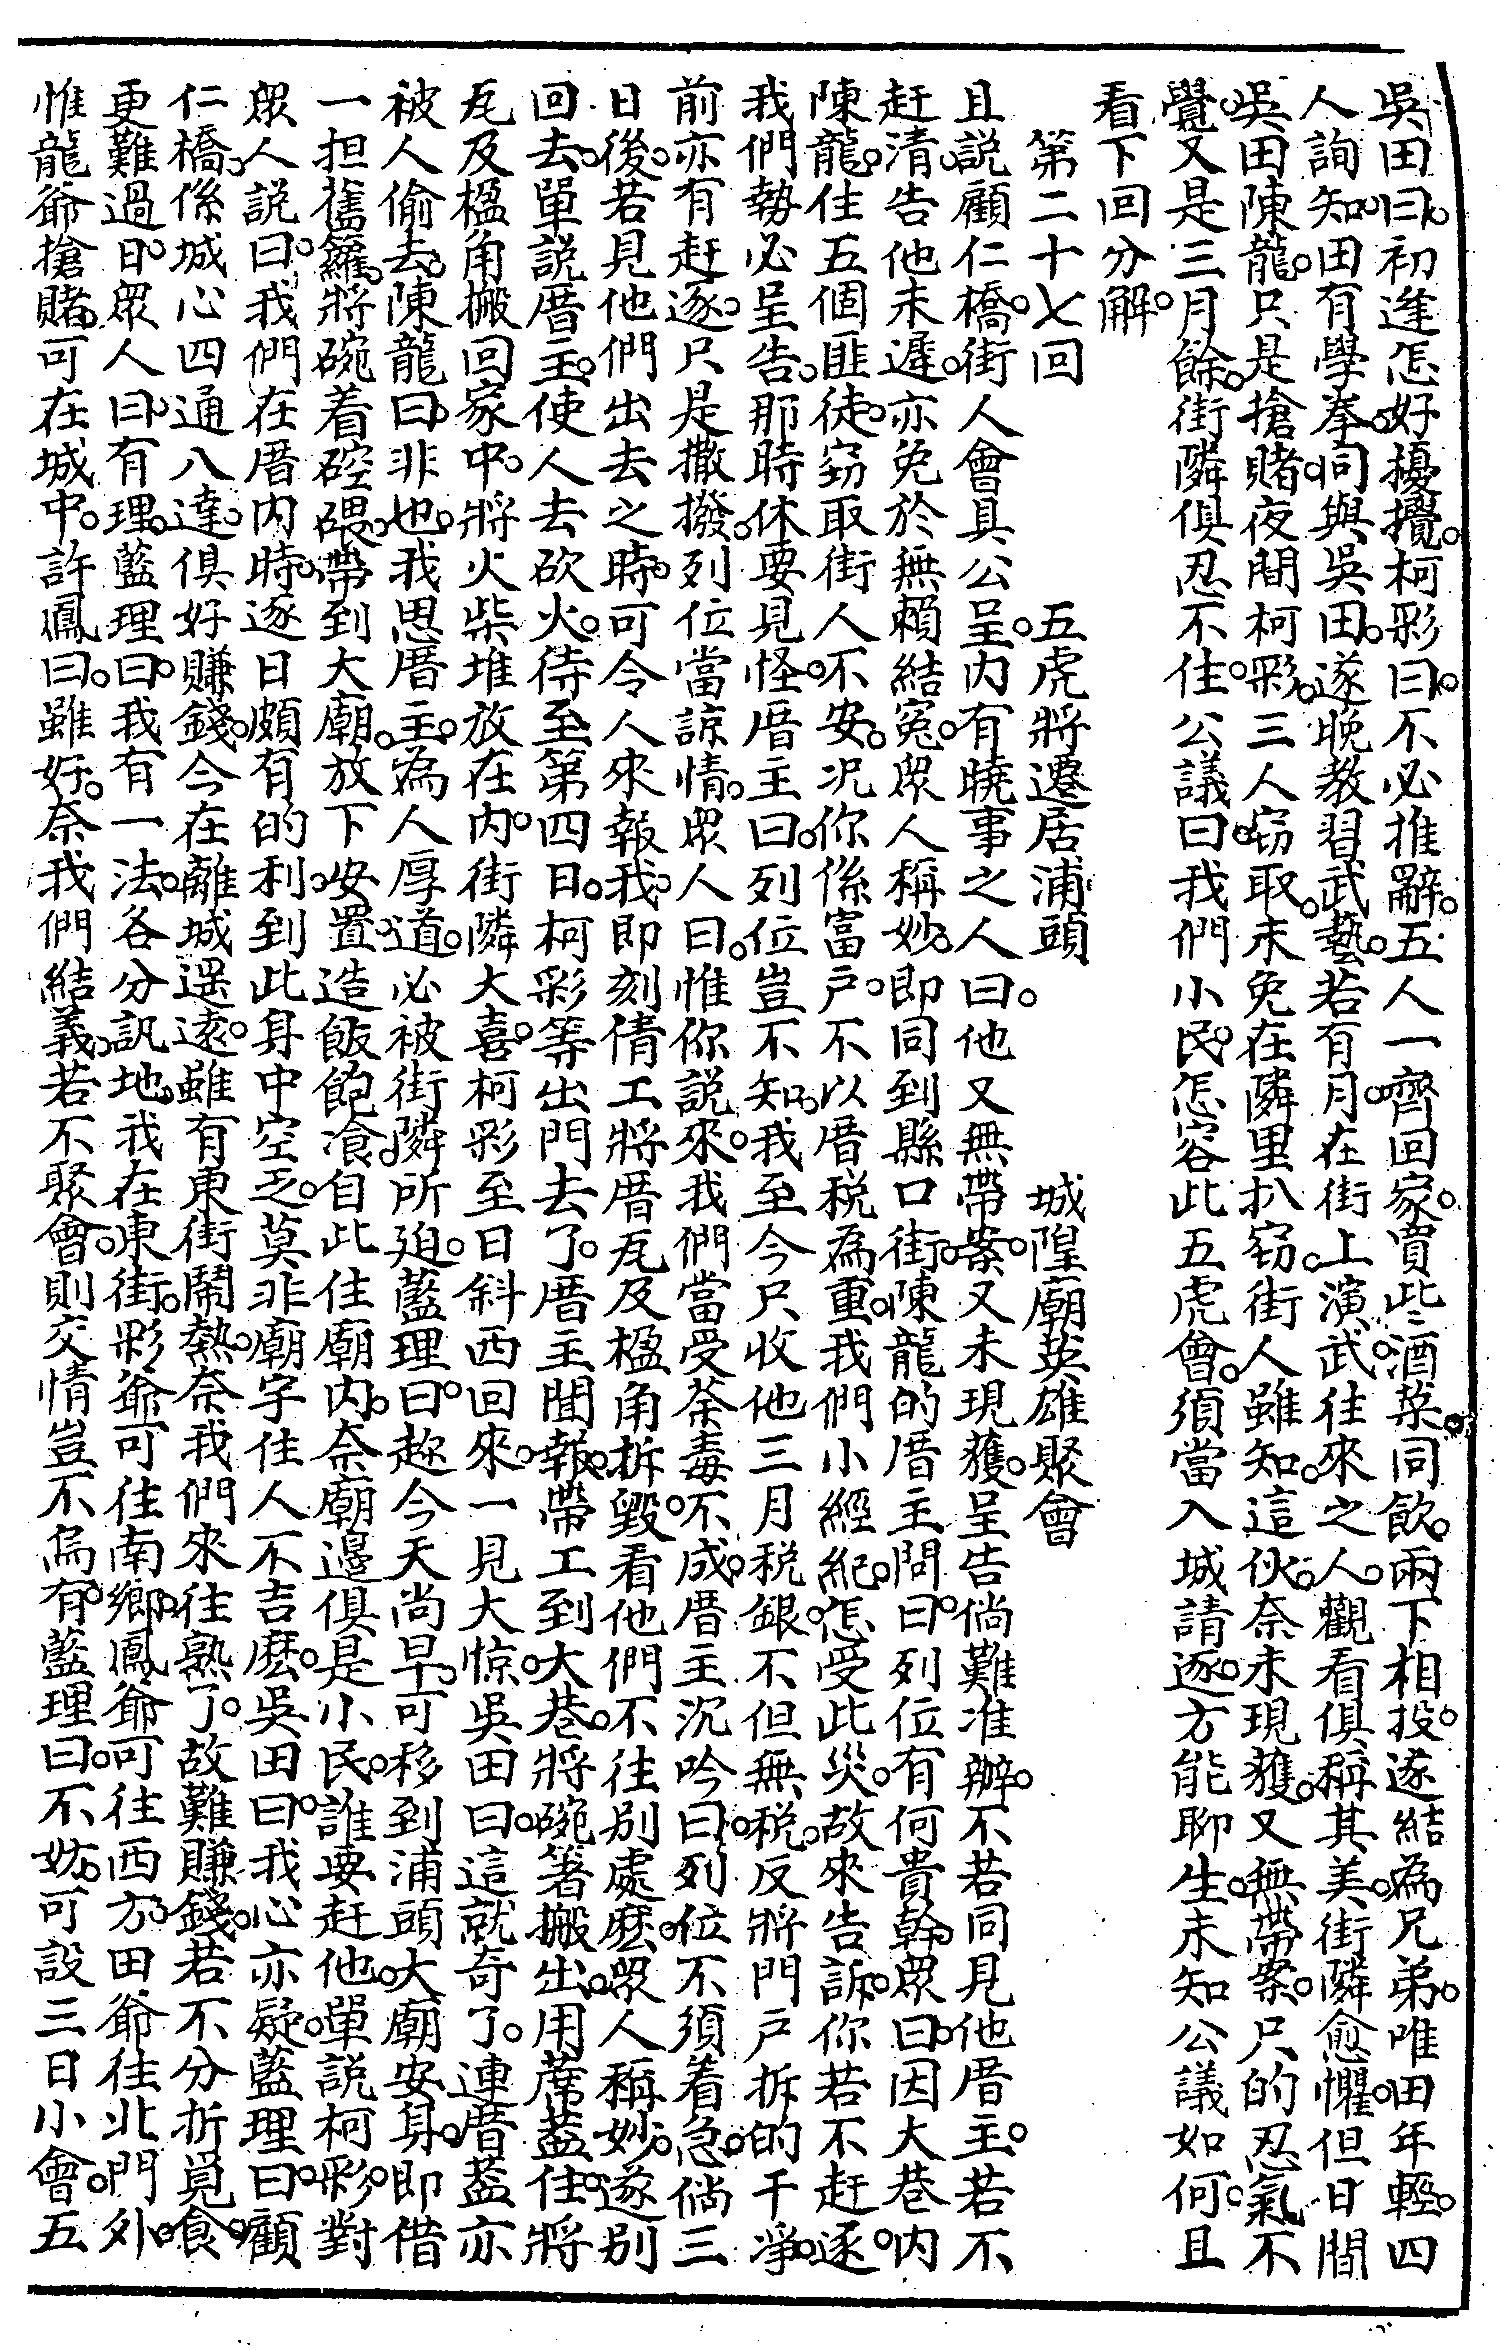 吳田曰。初逢怎好擾攪。柯彩曰。不必推辭。五人一齊回家。買些酒菜同飲。兩下相投。遂結為兄弟。唯田年輕。四
人詢知。田有學拳。同與吳田。遂晚教習武藝。若有月。在街上演武。往來之人。觀看俱稱其美。街隣愈懼。但日間
吳田陳龍。只是搶賭。夜間柯彩。三人窃取。未免在隣里扒窃。街人雖知。這伙。奈未現獲。又無帶案。只的忍氣不
覺。又是三月餘。街隣俱忍不住。公議曰。我們小民。怎容此五虎會。須當入城請逐。方能聊生。未知公議如何。且
看下回分解。
第二十七回　五虎將遷居浦頭　城隍廟英雄聚會
且說顧仁橋。街人會具公呈。內有曉事之人曰。他又無帶案。又未現獲。呈告倘難准辦。不若同見他厝主。若不
赶清。告他未遲。亦免於無賴結冤。眾人稱妙。即同到縣口街。陳龍的厝主問曰。列位有何貴幹。眾曰。因大巷內
陳龍。住五個匪徒。窃取街人。不安。况你係富戶。不以厝税為重。我們小經紀。怎受此災。故來告訴。你若不赶逐。
我們勢必呈告。那時休要見怪。厝主曰。列位豈不知。我至今只收他三月税銀。不但無税。反將門戶拆的干凈。
前亦有赶逐。只是撒撥。列位當諒情。眾人曰。惟你說來。我們當受荼毒。不成。厝主沉吟曰。列位不須着急。倘三
日後。若見他們出去之時。可令人來報我。即刻倩工將厝瓦及楹角拆毀。看他們不往別處麽。眾人稱妙。遂別
回去。單說厝主。使人去砍火。待至第四日。柯彩等出門去了。厝主聞報。帶工到大巷。將碗箸搬出。用蓆蓋住。將
瓦及楹角搬回家中。將火柴堆放在內。街隣大喜。柯彩至日斜西回來。一見大惊。吳田曰。這就奇了。連厝蓋亦
被人偷去。陳龍曰。非也。我思厝主。為人厚道。必被街隣所廹。藍理曰。趂今天尚早。可移到浦頭大廟安身。即借
一担舊籮。將碗着硿隈。帶到大廟。放下安置。造飯飽飡。自此住廟內。奈廟邊俱是小民。誰要赶他。單說柯彩。對
眾人說曰。我們在厝內時。逐日頗有的利。到此身中空乏。莫非廟字住人不吉麽。吳田曰。我心亦疑。藍理曰。顧
仁橋。係城心四通八達。俱好賺錢。今在離城遥遠。雖有東街鬧熱。奈我們來往熟了。故難賺錢。若不分折覓食。
更難過日。眾人曰。有理。藍理曰。我有一法。各分訊地。我在東街。彩爺可往南鄉。鳳爺可往西方。田爺往北門外。
惟龍爺搶賭。可在城中。許鳳曰。雖好。奈我們結義。若不聚會。則交情豈不烏有。藍理曰。不妨。可設三日小會。五